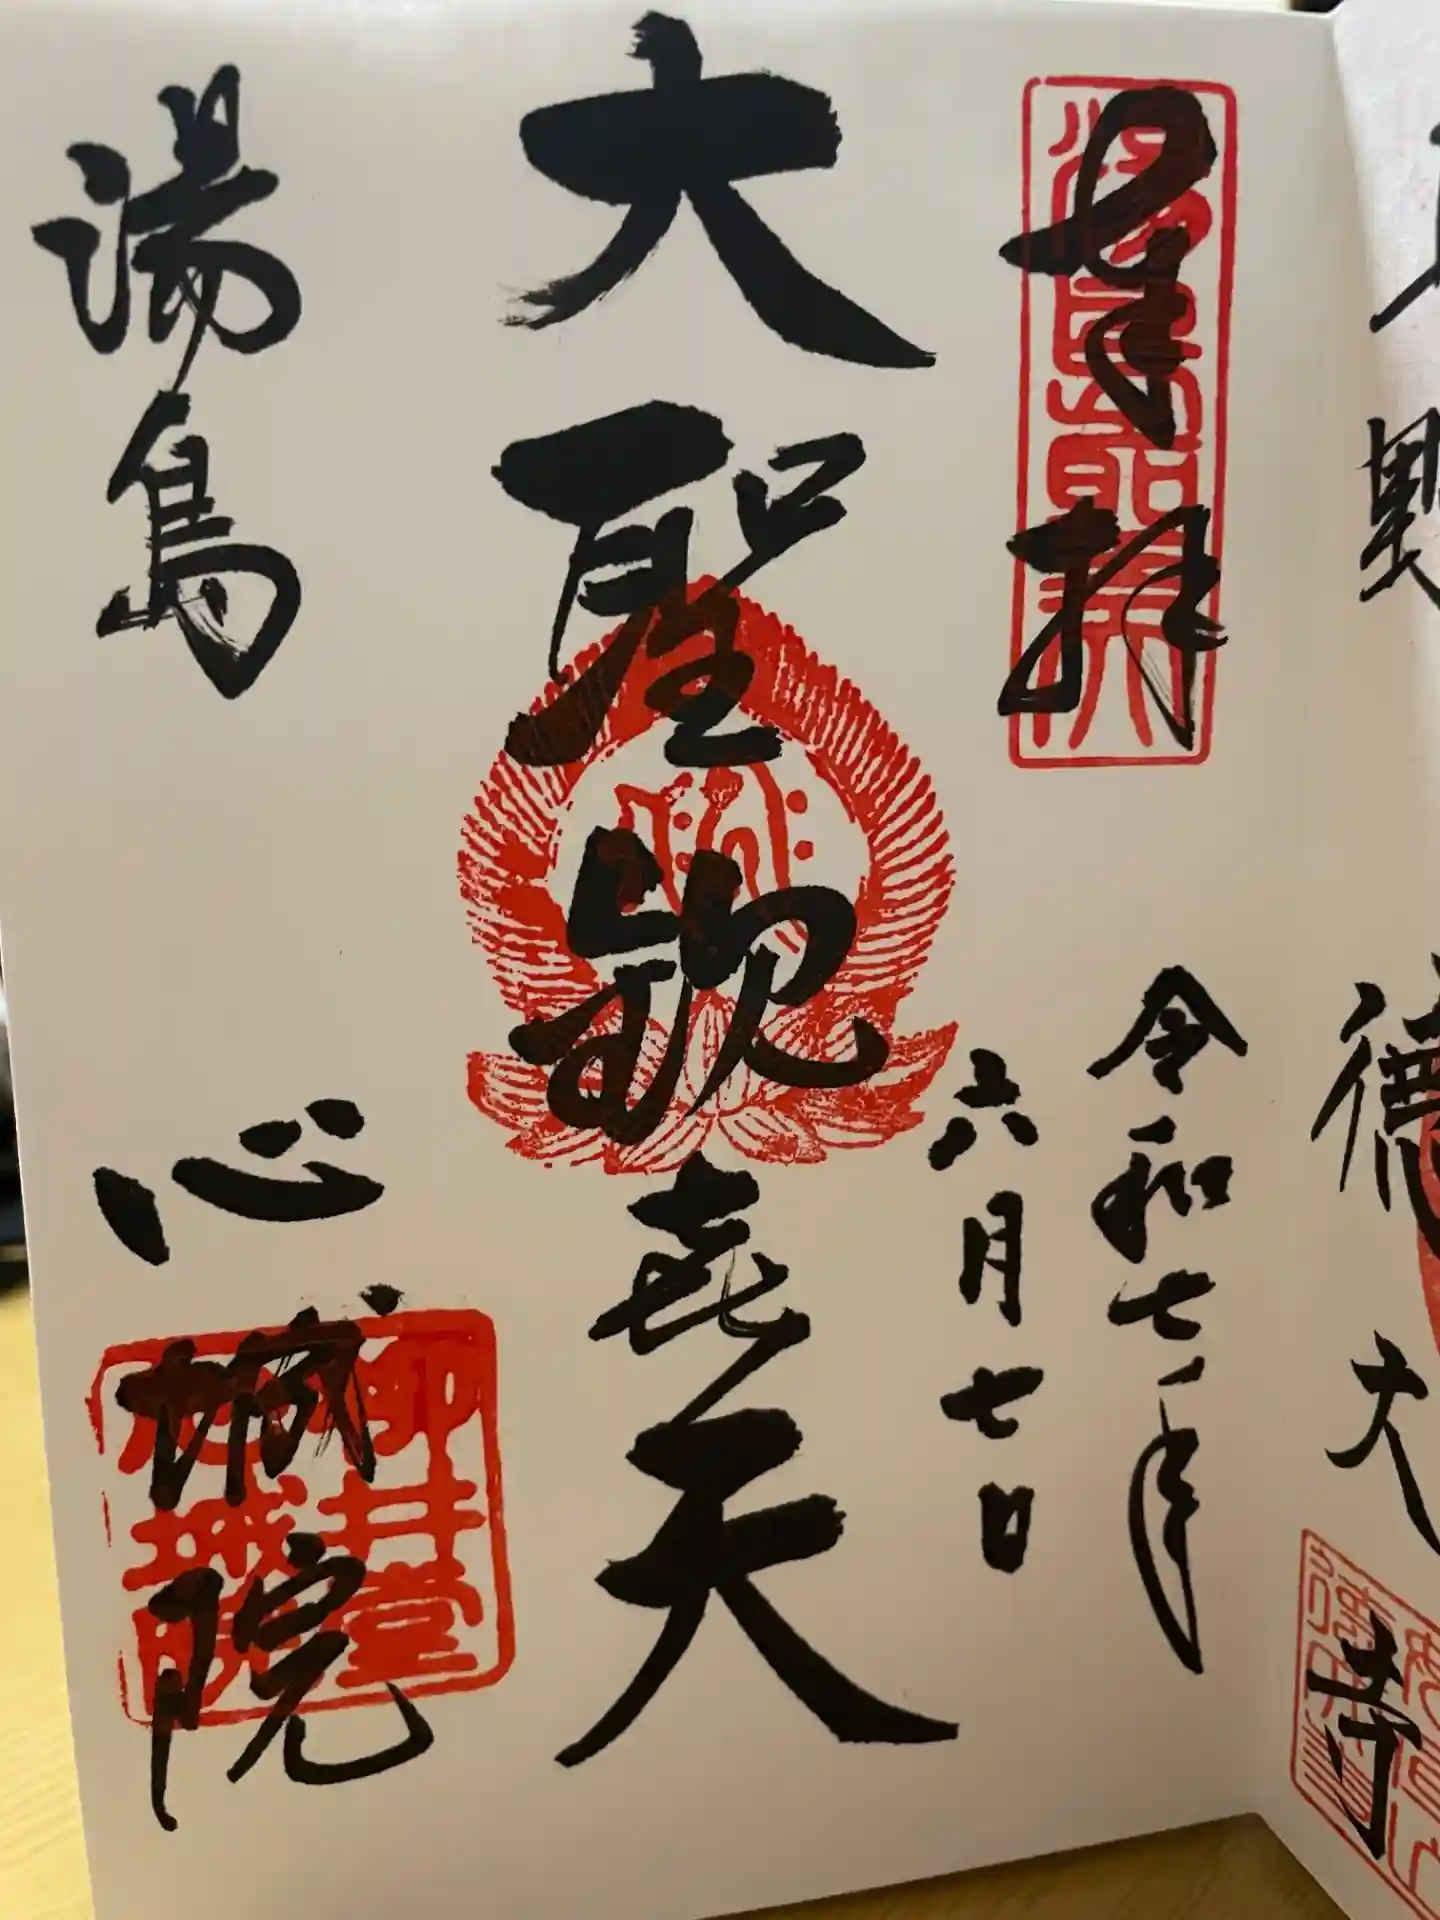 奉拝
令和七年
六月七日
大聖歓喜天
湯島
心城院
柳井堂
心城院
徳大寺